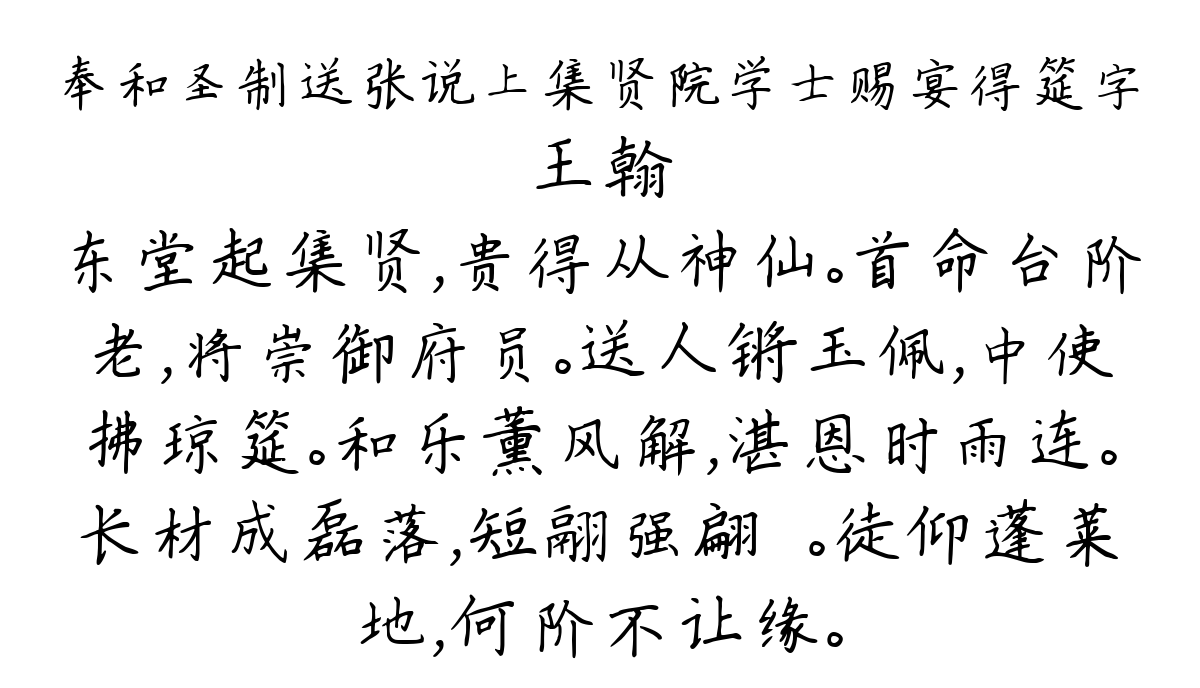 奉和圣制送张说上集贤院学士赐宴得筵字
王翰
东堂起集贤,贵得从神仙。首命台阶
老,将崇御府员。送人锵玉佩,中使
拂琼筵。和乐薰风解,湛恩时雨连。
长材成磊落,短翮强翩 。徒仰蓬莱
地,何阶不让缘。